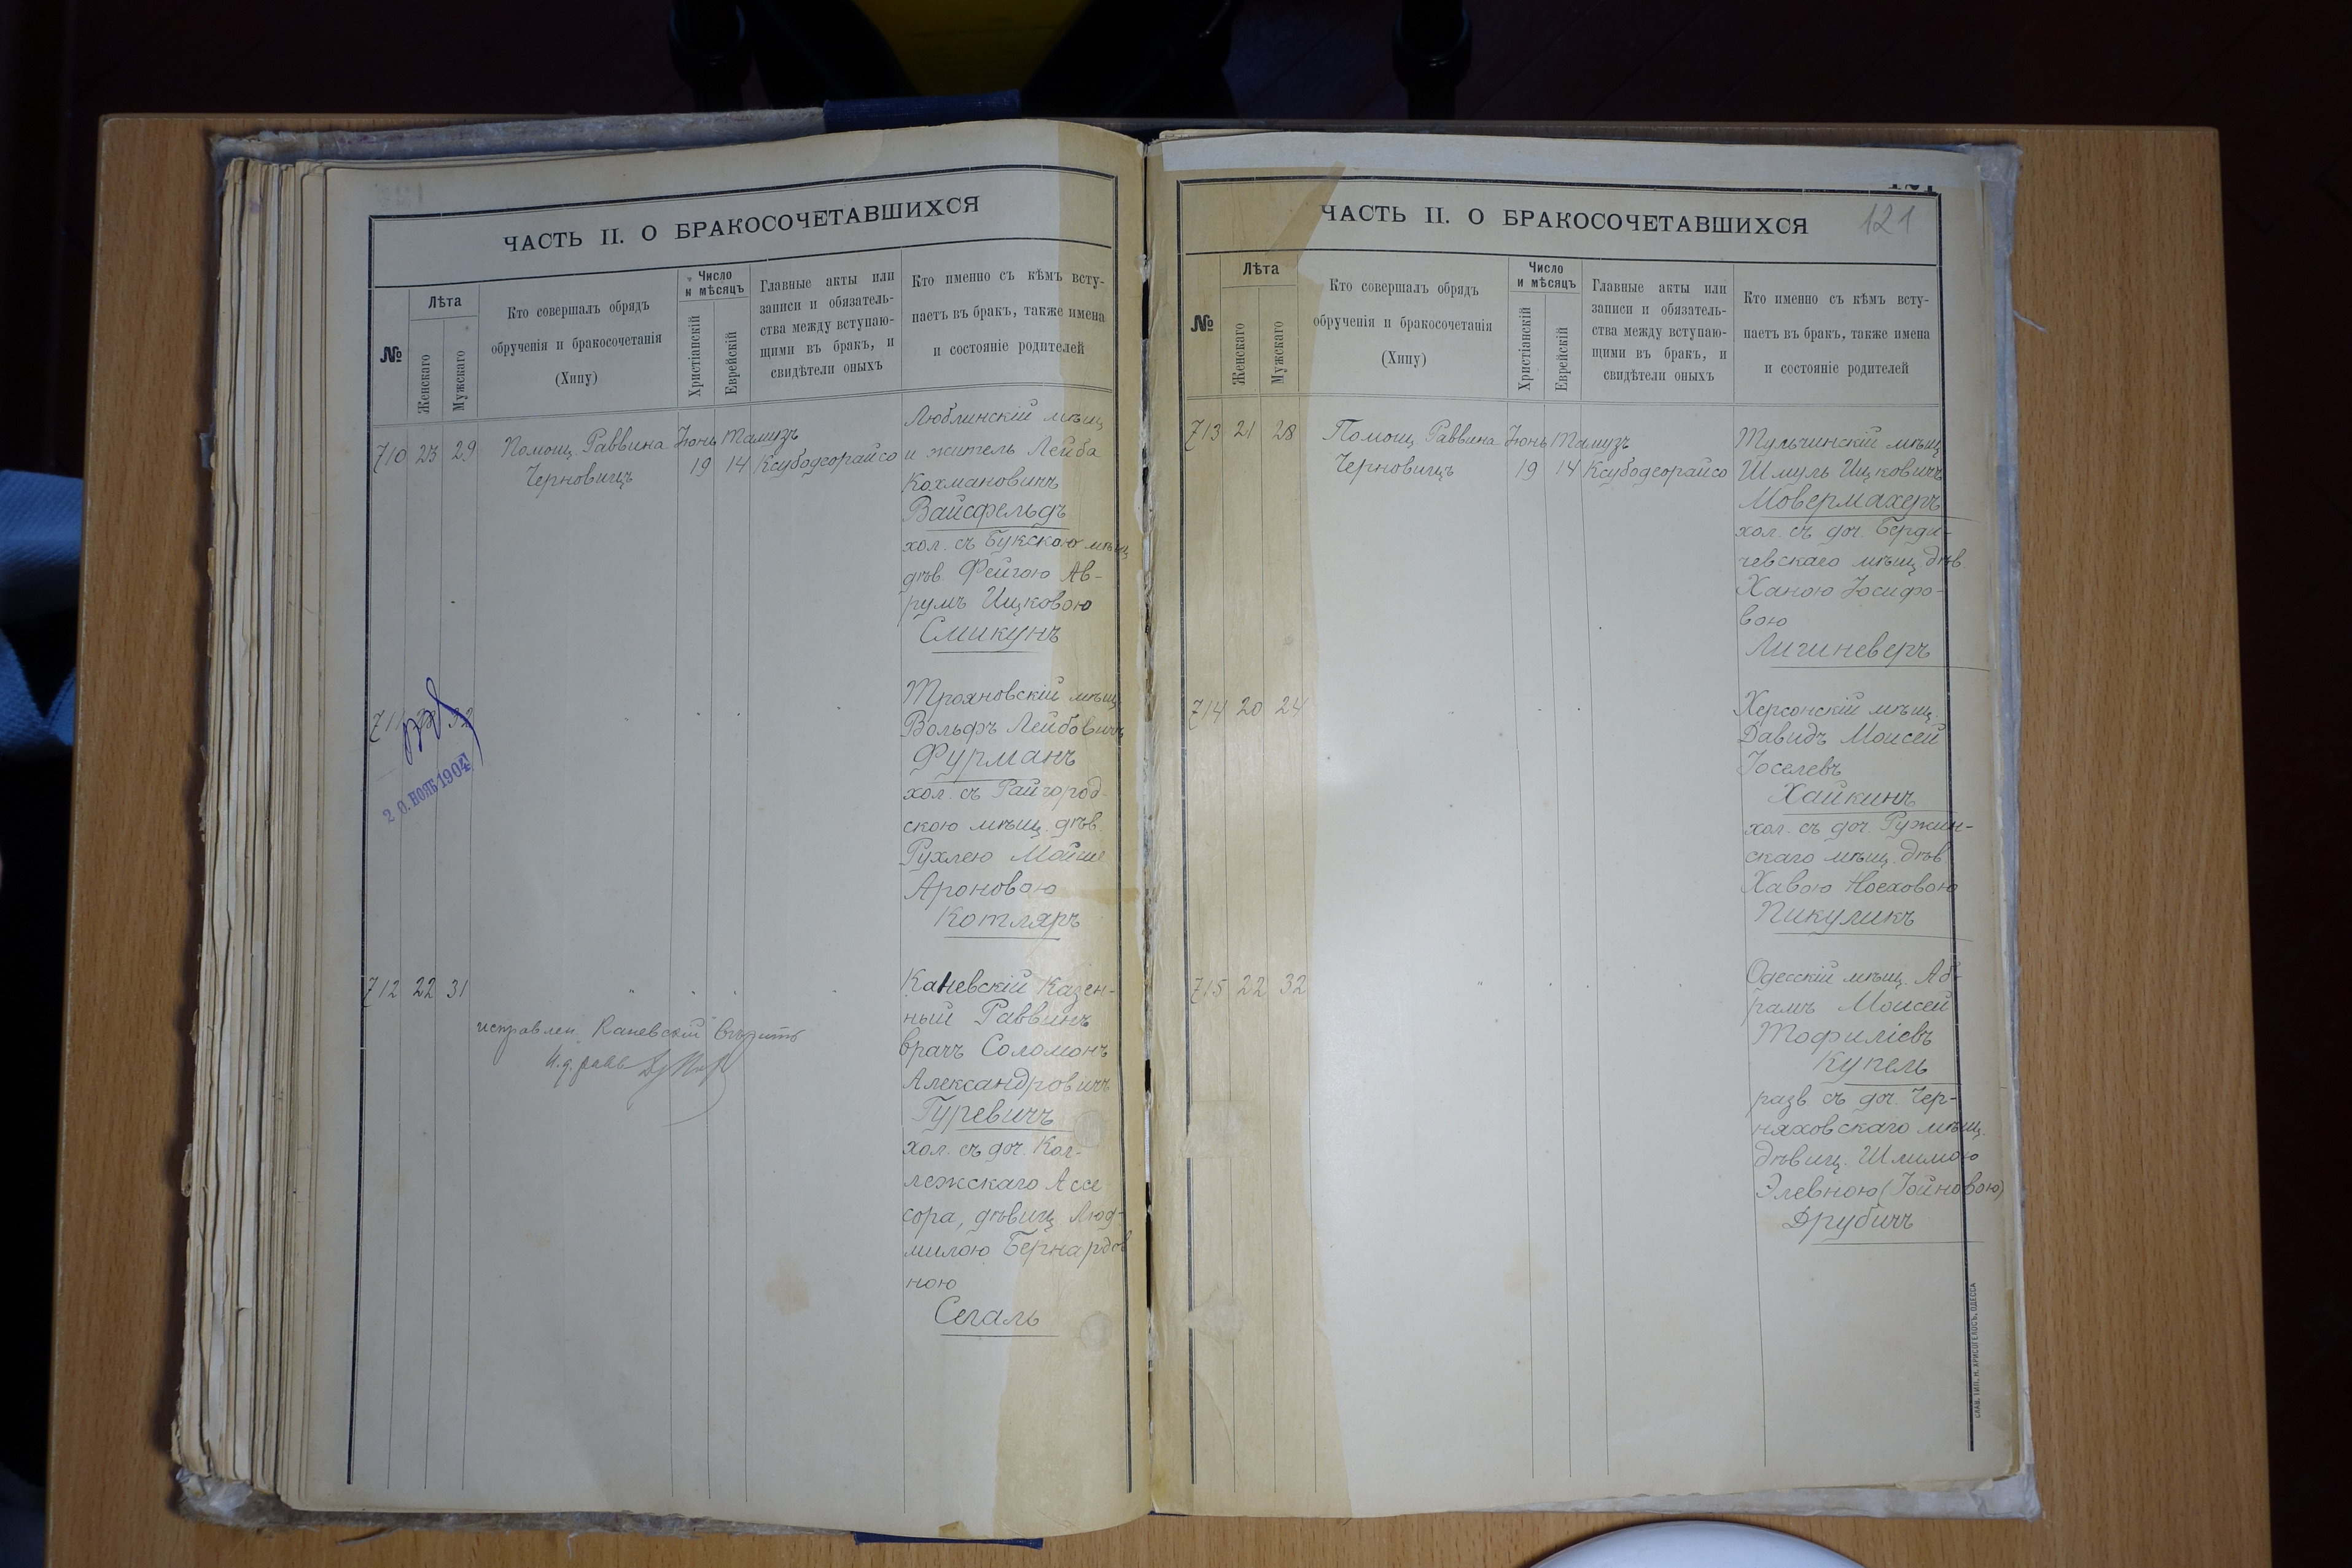 ЧАСТЬ II. О БРАКОСОЧЕТАВШИХСЯ
№
Лѣта
Женскаго
Мужскаго
Кто совершалъ обрядъ
обрученія и бракосочетанія
(Хипу)
Число
и мѣсяцъ
Христіанскій
Еврейскій
Главные акты или
записи и обязатель-
ства между вступаю-
щими въ бракъ, и
свидѣтели оныхъ
Кто именно съ кѣмъ всту-
паетъ въ бракъ, также имена
и состояніе родителей
710 23 29
Помощ. Раввина
Черновицъ
Іюнь
19
Тамузъ
14
Ксубодеорайсо
Люблинскій мѣщ.
и житель Лейба
Кохмановичъ
Вайсфельдъ
хол. съ Букскою мѣщ.
дѣв. Фейгою Ав-
румъ Ицковою
Смикунъ
711 32
20. НОЯБ 1904
Трояновскій мѣщ.
Вольфъ Лейбовичъ
Фурманъ
хол. съ Райгород-
скою мѣщ. дѣв.
Рухлею Мойше
Ароновою
Котляръ
712 22 31
исправлен. "Каневскій" вѣрить
И. д. равв.
Каневскій Казен-
ный Раввинъ
врачъ Соломонъ
Александровичъ
Гуревичъ
хол. съ доч. Кол-
лежскаго Ассе
сора, дѣвиц. Люд-
милою Бернардов
ною
Сегаль
121
ЧАСТЬ II. О БРАКОСОЧЕТАВШИХСЯ
121
№
Лѣта
Женскаго
Мужскаго
Кто совершалъ обрядъ
обрученія и бракосочетанія
(Хипу)
Число
и мѣсяцъ
Христіанскій
Еврейскій
Главные акты или
записи и обязатель-
ства между вступаю-
щими въ бракъ, и
свидѣтели оныхъ
Кто именно съ кѣмъ всту-
паетъ въ бракъ, также имена
и состояніе родителей
713 21 28
Помощ. Раввина
Черновицъ
Іюнь
19
Тамузъ
14
Ксубодеорайсо
Тульчинскій мѣщ.
Шмуль Ицковичъ
Мовермахеръ
хол. съ доч. Берди-
чевскаго мѣщ. дѣв.
Ханою Іосифо-
вою
Лигиневеръ
714 20 24
Херсонскій мѣщ.
Давидъ Моисей
Іоселевъ
Хайкинъ
хол. съ доч. Ружин-
скаго мѣщ. дѣв.
Хавою Носховою
Пикуликъ
715 22 32
Одесскій мѣщ. Аб-
рамъ Моисей
Тофиліевъ
Купель
разв. съ доч. Чер-
няховскаго мѣщ.
дѣвиц. Шлимою
Элевною (Іойновою)
Друбичъ
СЛАВ. ТИП. Н. ХРИСОГЕЛОСЪ, ОДЕССА